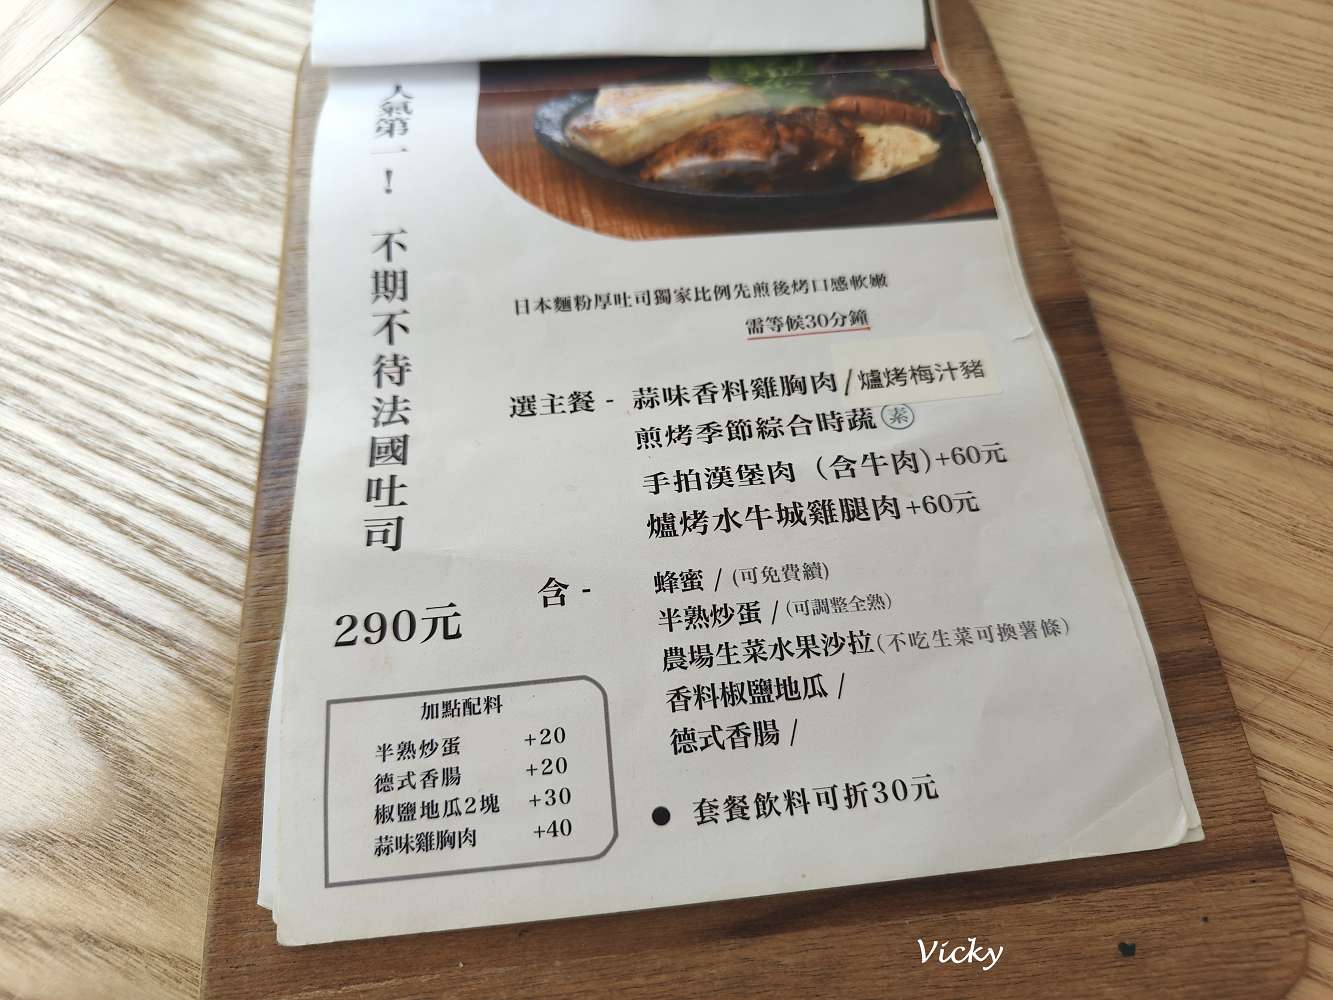 人氣第一！ 不期不待法國吐司
290元
日本麵粉厚吐司獨家比例先煎後烤口感軟嫩
需等候30分鐘
選主餐 - 蒜味香料雞胸肉/爐烤梅汁豬
煎烤季節綜合時蔬 素
手拍漢堡肉（含牛肉)+60元
爐烤水牛城雞腿肉+60元
含 - 蜂蜜 / (可免費續)
半熟炒蛋 / (可調整全熟)
農場生菜水果沙拉(不吃生菜可換薯條)
香料椒鹽地瓜 /
德式香腸 /
● 套餐飲料可折30元
加點配料
半熟炒蛋 +20
德式香腸 +20
椒鹽地瓜2塊 +30
蒜味雞胸肉 +40
Vicky